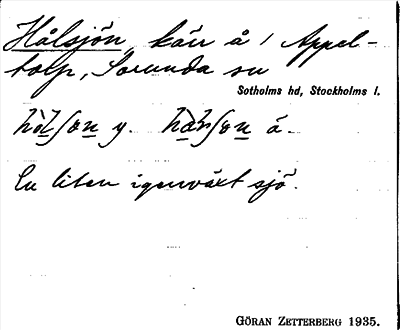 Hålsjön, kärr å / Appel-
torp, Sorunda sn
Sotholms hd, Stockholms l.
y. a.
En liten igenväxt sjö.
GÖRAN ZETTERBERG 1935.